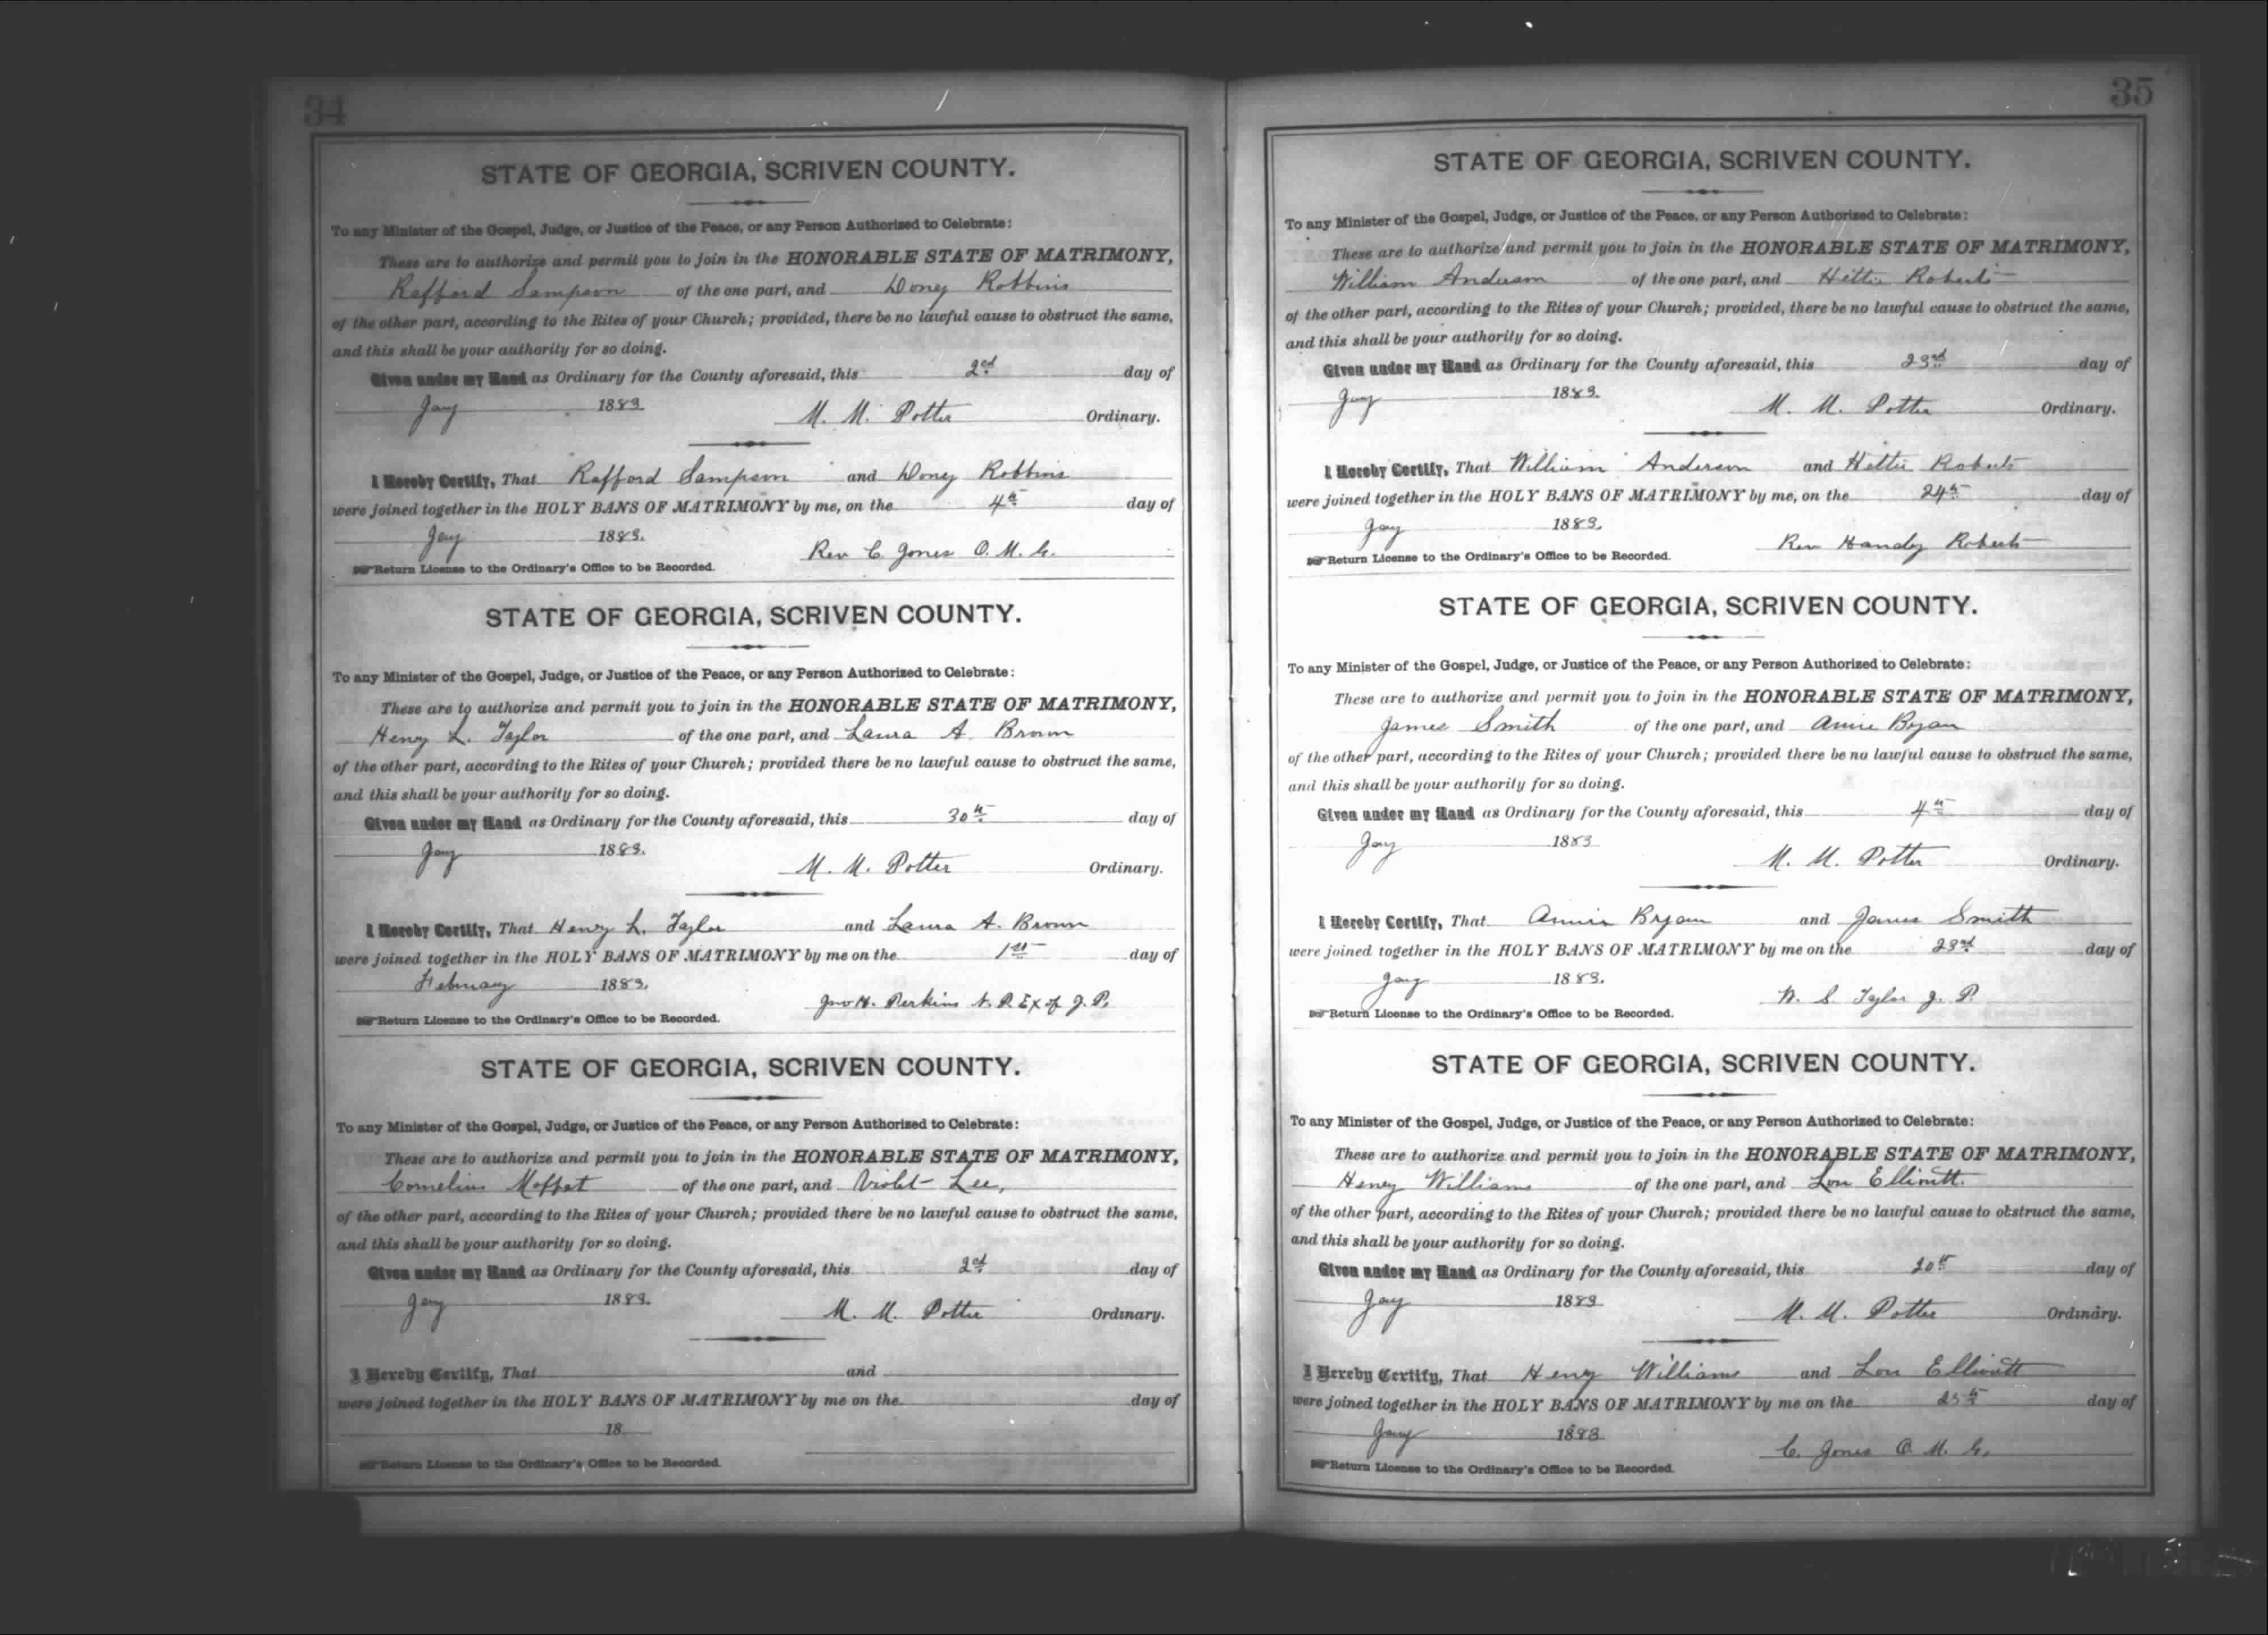 34
STATE OF GEORGIA, SCRIVEN COUNTY.
To any Minister of the Gospel, Judge, or Justice of the Peace, or any Person Authorized to Celebrate:
These are to authorize and permit you to join in the HONORABLE STATE OF MATRIMONY,
Rafford Sampson of the one part, and Doney Robbins
of the other part, according to the Rites of your Church; provided, there be no lawful cause to obstruct the same,
and this shall be your authority for so doing.
Given under my Hand as Ordinary for the County aforesaid, this 2nd day of
Jany 1883. M. M. Potter Ordinary.
I Hereby Certify, That Rafford Sampson and Doney Robbins
were joined together in the HOLY BANS OF MATRIMONY by me, on the 4th day of
Jany 1883.
Rev C. Jones O. M. G.
Return License to the Ordinary's Office to be Recorded.
STATE OF GEORGIA, SCRIVEN COUNTY.
To any Minister of the Gospel, Judge, or Justice of the Peace, or any Person Authorized to Celebrate:
These are to authorize and permit you to join in the HONORABLE STATE OF MATRIMONY,
Henry L. Taylor of the one part, and Laura A. Brown
of the other part, according to the Rites of your Church; provided there be no lawful cause to obstruct the same,
and this shall be your authority for so doing.
Given under my Hand as Ordinary for the County aforesaid, this 30th day of
Jany 1883. M. M. Potter Ordinary.
I Hereby Certify, That Henry L. Taylor and Laura A. Brown
were joined together in the HOLY BANS OF MATRIMONY by me on the 1st day of
February 1883.
Jno H. Perkins N. P. Ex of J. P.
Return License to the Ordinary's Office to be Recorded.
STATE OF GEORGIA, SCRIVEN COUNTY.
To any Minister of the Gospel, Judge, or Justice of the Peace, or any Person Authorized to Celebrate:
These are to authorize and permit you to join in the HONORABLE STATE OF MATRIMONY,
Cornelius Moffet of the one part, and Violet Lee,
of the other part, according to the Rites of your Church; provided there be no lawful cause to obstruct the same,
and this shall be your authority for so doing.
Given under my Hand as Ordinary for the County aforesaid, this 2nd day of
Jany 1883. M. M. Potter Ordinary.
I Hereby Certify, That and
were joined together in the HOLY BANS OF MATRIMONY by me on the day of
18
Return License to the Ordinary's Office to be Recorded.
35
STATE OF GEORGIA, SCRIVEN COUNTY.
To any Minister of the Gospel, Judge, or Justice of the Peace, or any Person Authorized to Celebrate:
These are to authorize and permit you to join in the HONORABLE STATE OF MATRIMONY,
William Anderson of the one part, and Hettie Roberts
of the other part, according to the Rites of your Church; provided, there be no lawful cause to obstruct the same,
and this shall be your authority for so doing.
Given under my Hand as Ordinary for the County aforesaid, this 23rd day of
Jany 1883. M. M. Potter Ordinary.
I Hereby Certify, That William Anderson and Hettie Roberts
were joined together in the HOLY BANS OF MATRIMONY by me, on the 24th day of
Jany 1883.
Rev Handy Roberts
Return License to the Ordinary's Office to be Recorded.
STATE OF GEORGIA, SCRIVEN COUNTY.
To any Minister of the Gospel, Judge, or Justice of the Peace, or any Person Authorized to Celebrate:
These are to authorize and permit you to join in the HONORABLE STATE OF MATRIMONY,
James Smith of the one part, and Annie Bryan
of the other part, according to the Rites of your Church; provided there be no lawful cause to obstruct the same,
and this shall be your authority for so doing.
Given under my Hand as Ordinary for the County aforesaid, this 4th day of
Jany 1883 M. M. Potter Ordinary.
I Hereby Certify, That Annie Bryan and James Smith
were joined together in the HOLY BANS OF MATRIMONY by me on the 23rd day of
Jany 1883.
W. S. Taylor J. P.
Return License to the Ordinary's Office to be Recorded.
STATE OF GEORGIA, SCRIVEN COUNTY.
To any Minister of the Gospel, Judge, or Justice of the Peace, or any Person Authorized to Celebrate:
These are to authorize and permit you to join in the HONORABLE STATE OF MATRIMONY,
Henry Williams of the one part, and Lou Elliott.
of the other part, according to the Rites of your Church; provided there be no lawful cause to obstruct the same,
and this shall be your authority for so doing.
Given under my Hand as Ordinary for the County aforesaid, this 20th day of
Jany 1883 M. M. Potter Ordinary.
I Hereby Certify, That Henry Williams and Lou Elliott
were joined together in the HOLY BANS OF MATRIMONY by me on the 25th day of
Jany 1883
C. Jones O. M. G.
Return License to the Ordinary's Office to be Recorded.